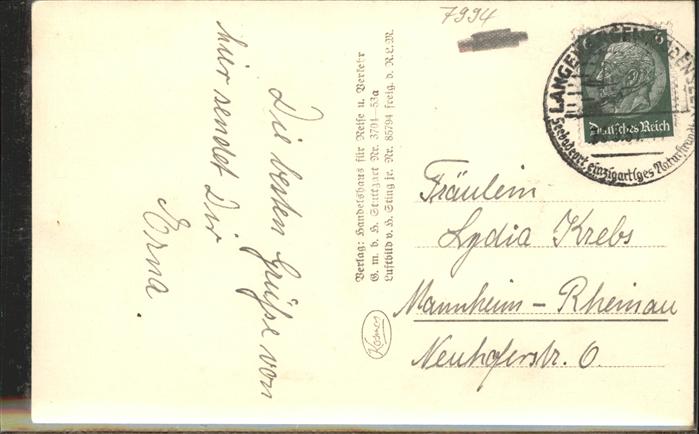 7994
Die besten Grüße von
hier sendet Dir
Erna.
Verlag: Handelshaus für Reise u. Verkehr
G. m. b. H. Stuttgart Nr. 3701-53a
Luftbild v. H. Sting jr. Nr. 85794 freig. d. R.L.M.
Kosmos
6
Deutsches Reich
LANGEN
Seebadeort einzigartiges Naturstrand
Fräulein
Lydia Krebs
Mannheim - Rheinau
Neuhoferstr. 6.